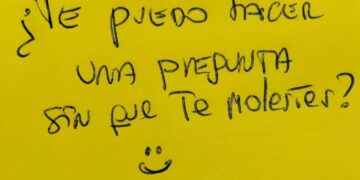 ¿TE PUEDO HACER
UNA PREGUNTA
SIN QUE TE MOLESTES?